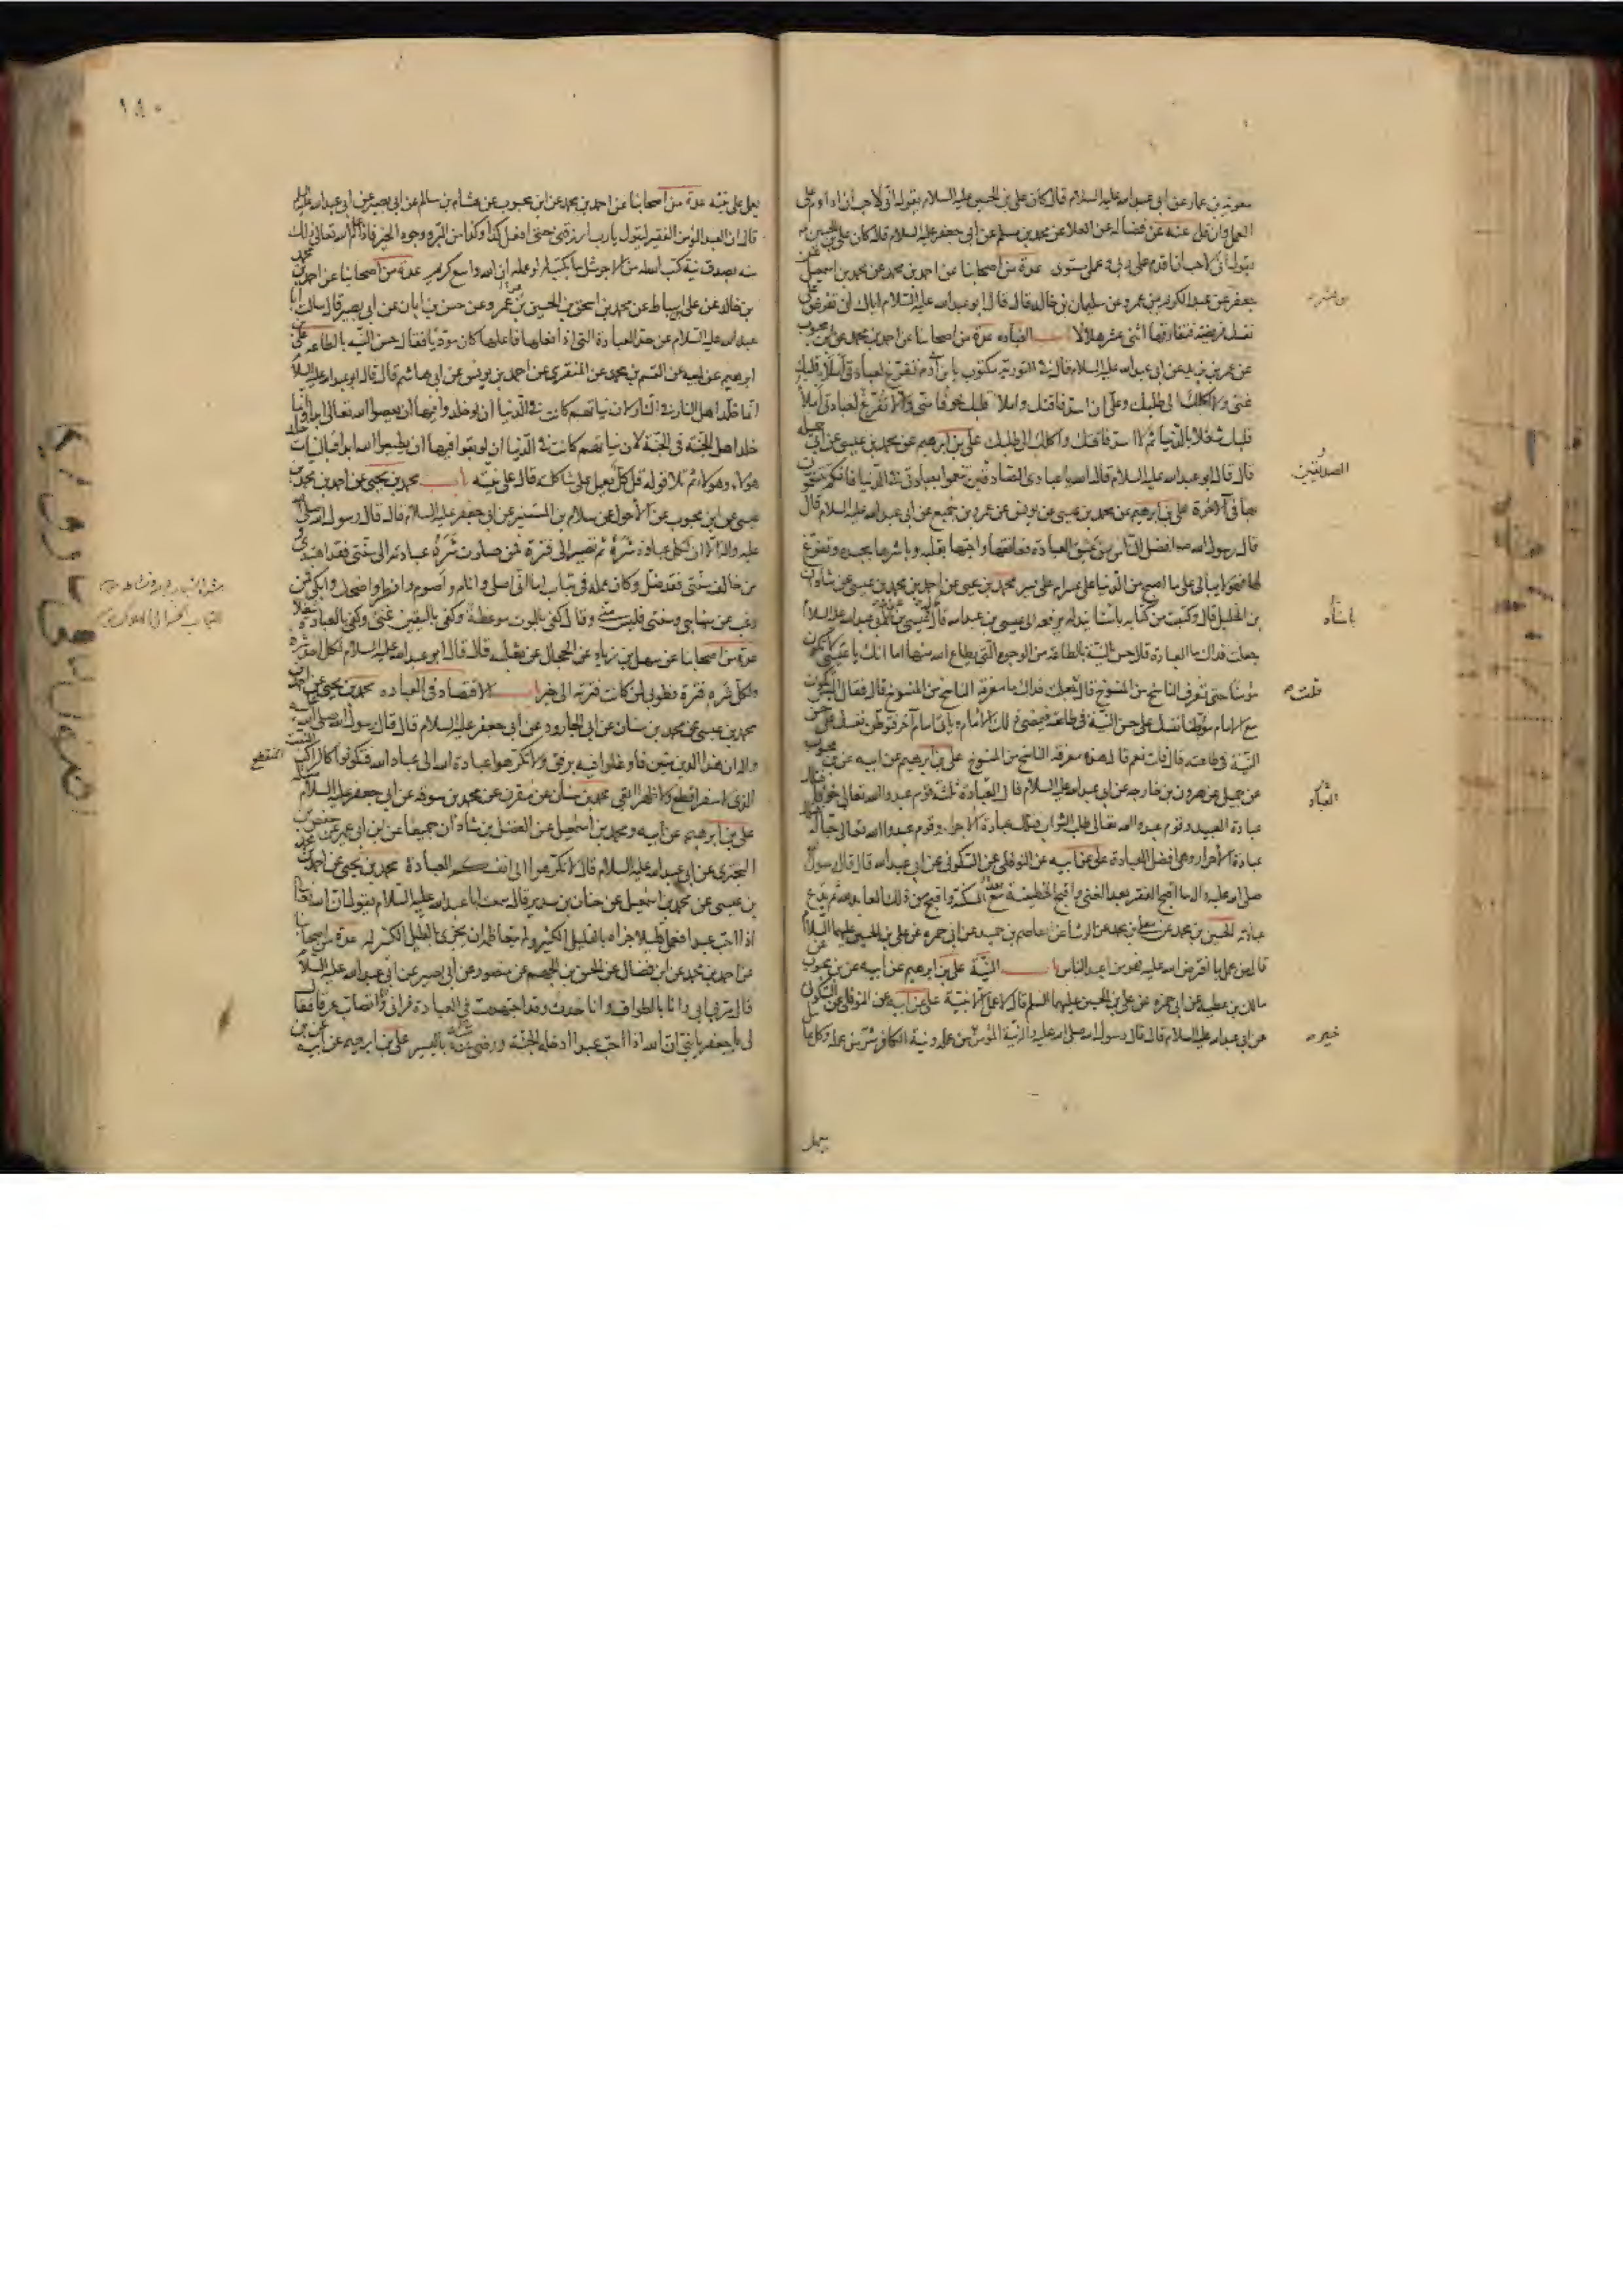 معوية بن عمار عن ابى عبد الله عليه السلام قال كان على بن الحسين عليه السلام يقول انى لاحب ان اداوم على
العمل وان قل عنه عن فضالة عن العلا عن محمد بن مسلم عن أبى جعفر عليه السلام قال كان على بن الحسين
يقول انى لاحب ان اقدم على ربى وعملى مستوى عدة من اصحابنا عن احمد بن محمد عن محمد بن اسمعيل
جعفر عن عبد الكريم بن عمرو عن سليمان بن خالد قال قال ابو عبد الله عليه السلام اياك ان تفرض على
نفسك فريضة فتفارقها اثنى عشر هلالا باب العبادة عدة من اصحابنا عن احمد بن محمد عن ابن محبوب
عن عمر بن يزيد عن ابى عبد الله عليه السلام قال فى التورية مكتوب يا بن آدم تفرغ لعبادتى املأ قلبك
غنى ولا اكلك الى طلبك وعلى ان اسد فاقتك واملأ قلبك خوفا منى وان لا تفرغ لعبادتى املأ
قلبك شغلا بالدنيا ثم لا اسد فاقتك واكلك الى طلبك على بن ابرهيم عن محمد بن عيسى عن ابى جميلة
قال قال ابو عبد الله عليه السلام قال الله يا عبادى الصادقين تنعموا بعبادتى فى الدنيا فانكم تتنعمون
بها فى الآخرة على بن ابرهيم عن محمد بن عيسى عن يونس عن عمرو بن جميع عن ابى عبد الله عليه السلام قال
قال رسول الله صه افضل الناس من عشق العبادة فعانقها واحبها بقلبه وباشرها بجسده وتفرغ
لها فهو لا يبالى على ما اصبح من الدنيا على عسر ام على يسر محمد بن يحيى عن احمد بن محمد بن عيسى عن شاذان
بن الخليل قال وكتبت من كتابه باسناد له يرفعه الى عيسى بن عبد الله قال قال عيسى بن عبد الله لابى عبد الله عليه السلام
جعلت فداك ما العبادة قال حسن النية بالطاعة من الوجوه التى يطاع الله منها اما انك يا عيسى لا تكون
مؤمنا حتى تعرف الناسخ من المنسوخ قال جعلت فداك ما معرفة الناسخ من المنسوخ قال فقال اليس تكون
مع الامام موطنا نفسك على حسن النية فى طاعته فيمضى ذلك الامام ويأتى امام آخر فتوطن نفسك على حسن
النية فى طاعته قال قلت نعم قال هذا معرفة الناسخ من المنسوخ على بن ابرهيم عن ابيه عن بن محبوب
عن جميل عن هرون بن خارجة عن ابى عبد الله عليه السلام قال العبادة ثلثة قوم عبدوا الله تعالى خوفا فتلك
عبادة العبيد وقوم عبدوا الله تعالى طلب الثواب فتلك عبادة الاجراء وقوم عبدوا الله تعالى حبا له فتلك
عبادة الأحرار وهى افضل العبادة على عن ابيه عن النوفلى عن السكونى عن ابى عبد الله قال قال رسول
صلى الله عليه واله ما اقبح الفقر بعد الغنى واقبح الخطيئة بعد المسكنة واقبح من ذلك العابد لله ثم يدع
عبادته الحسين بن محمد عن معلى بن محمد عن الوشا عن عاصم بن حميد عن ابى حمزة عن على بن الحسين عليهما السلام
قال من عمل بما افترض الله عليه فهو من اعبد الناس باب النية على بن ابرهيم عن ابيه عن بن محبوب عن
مالك بن عطية عن ابى حمزة عن على بن الحسين عليهما السلم قال لا عمل الا بنية على عن ابيه عن النوفلى عن السكونى
عن ابى عبد الله عليه السلام قال قال رسول الله صلى الله عليه واله نية المؤمن من عمله ونية الكافر شر من عمله وكل عامل
الصديقين
باسناد
قلت
العباد
خير
يعمل
١٨٠
يعمل على نيته عدة من اصحابنا عن احمد بن محمد عن ابن محبوب عن هشام بن سالم عن ابى بصير عن ابى عبد الله عليه السلم
قال ان العبد المؤمن الفقير ليقول يا رب ارزقنى حتى افعل كذا وكذا من البر ووجوه الخير فاذا علم الله تعالى ذلك
منه بصدق نية كتب الله له من الاجر مثل ما يكتب له لو عمله ان الله واسع كريم عدة من اصحابنا عن احمد بن محمد
بن خالد عن على بن اسباط عن محمد بن اسحق بن الحسين بن عمرو عن حسن بن ابان عن ابى بصير قال سالت ابا
عبد الله عليه السلام عن حد العبادة التى اذا فعلها فاعلها كان مؤديا فقال حسن النية بالطاعة على بن
ابرهيم عن ابيه عن القسم بن محمد عن المنقرى عن احمد بن يونس عن ابى هاشم قال قال ابو عبد الله عليه السلام
انما خلد اهل النار فى النار لان نياتهم كانت فى الدنيا ان لو خلدوا فيها ان يعصوا الله تعالى ابدا وانما
خلد اهل الجنة فى الجنة لان نياتهم كانت فى الدنيا ان لو بقوا فيها ان يطيعوا الله ابدا فبالنيات خلد
هؤلاء وهؤلاء ثم تلا قوله قل كل يعمل على شاكلته قال على نيته باب محمد بن يحيى عن احمد بن محمد بن
عيسى عن ابن محبوب عن الأحول عن سلام بن المستنير عن ابى جعفر عليه السلام قال قال رسول الله صلى
عليه واله الا ان لكل عبادة شرة ثم تصير الى فترة فمن صارت شرة عبادته الى سنتى فقد اهتدى
ومن خالف سنتى فقد ضل وكان عمله فى تباب اما انى اصلى وانام واصوم وافطر واضحك وابكى فمن
رغب عن منهاجى وسنتى فليس منى وقال كفى بالموت موعظة وكفى باليقين غنى وكفى بالعبادة شغلا
عدة من اصحابنا عن سهل بن زياد عن الحجال عن ثعلبة قال قال ابو عبد الله عليه السلام لكل احد شرة
ولكل شرة فترة فطوبى لمن كانت فترته الى خير باب الاقتصاد فى العبادة محمد بن يحيى عن احمد بن
محمد بن عيسى عن محمد بن سنان عن ابى الجارود عن ابى جعفر عليه السلام قال قال رسول الله صلى الله عليه
واله ان هذا الدين متين فاوغلوا فيه برفق ولا تكرهوا عبادة الله الى عباد الله فتكونوا كالراكب المنبت
الذى لا سفرا قطع ولا ظهرا ابقى محمد بن سنان عن مقرن عن محمد بن سوقة عن ابى جعفر عليه السلام مثله
على بن ابرهيم عن ابيه ومحمد بن اسمعيل عن الفضل بن شاذان جميعا عن ابن ابى عمير عن حفص بن
البخترى عن ابى عبد الله عليه السلام قال لا تكرهوا الى انفسكم العبادة محمد بن يحيى عن احمد بن محمد
بن عيسى عن محمد بن اسمعيل عن حنان بن سدير قال سمعت ابا عبد الله عليه السلام يقول ان الله تعالى
اذا احب عبدا فعمل قليلا جزاه بالقليل الكثير ولم يتعاظم ان يجزى بالقليل الكثير له عدة من اصحابنا
عن احمد بن محمد عن ابن فضال عن الحسن بن الجهم عن منصور عن أبى بصير عن ابى عبد الله عليه السلام
قال مر بى ابى وانا بالطواف وانا حدث وقد اجتهدت فى العبادة فرانى وانا اتصاب عرقا فقال
لى يا جعفر يا بنى ان الله اذا احب عبدا ادخله الجنة ورضى عنه باليسير على بن ابرهيم عن ابيه عن بن
المنقطع